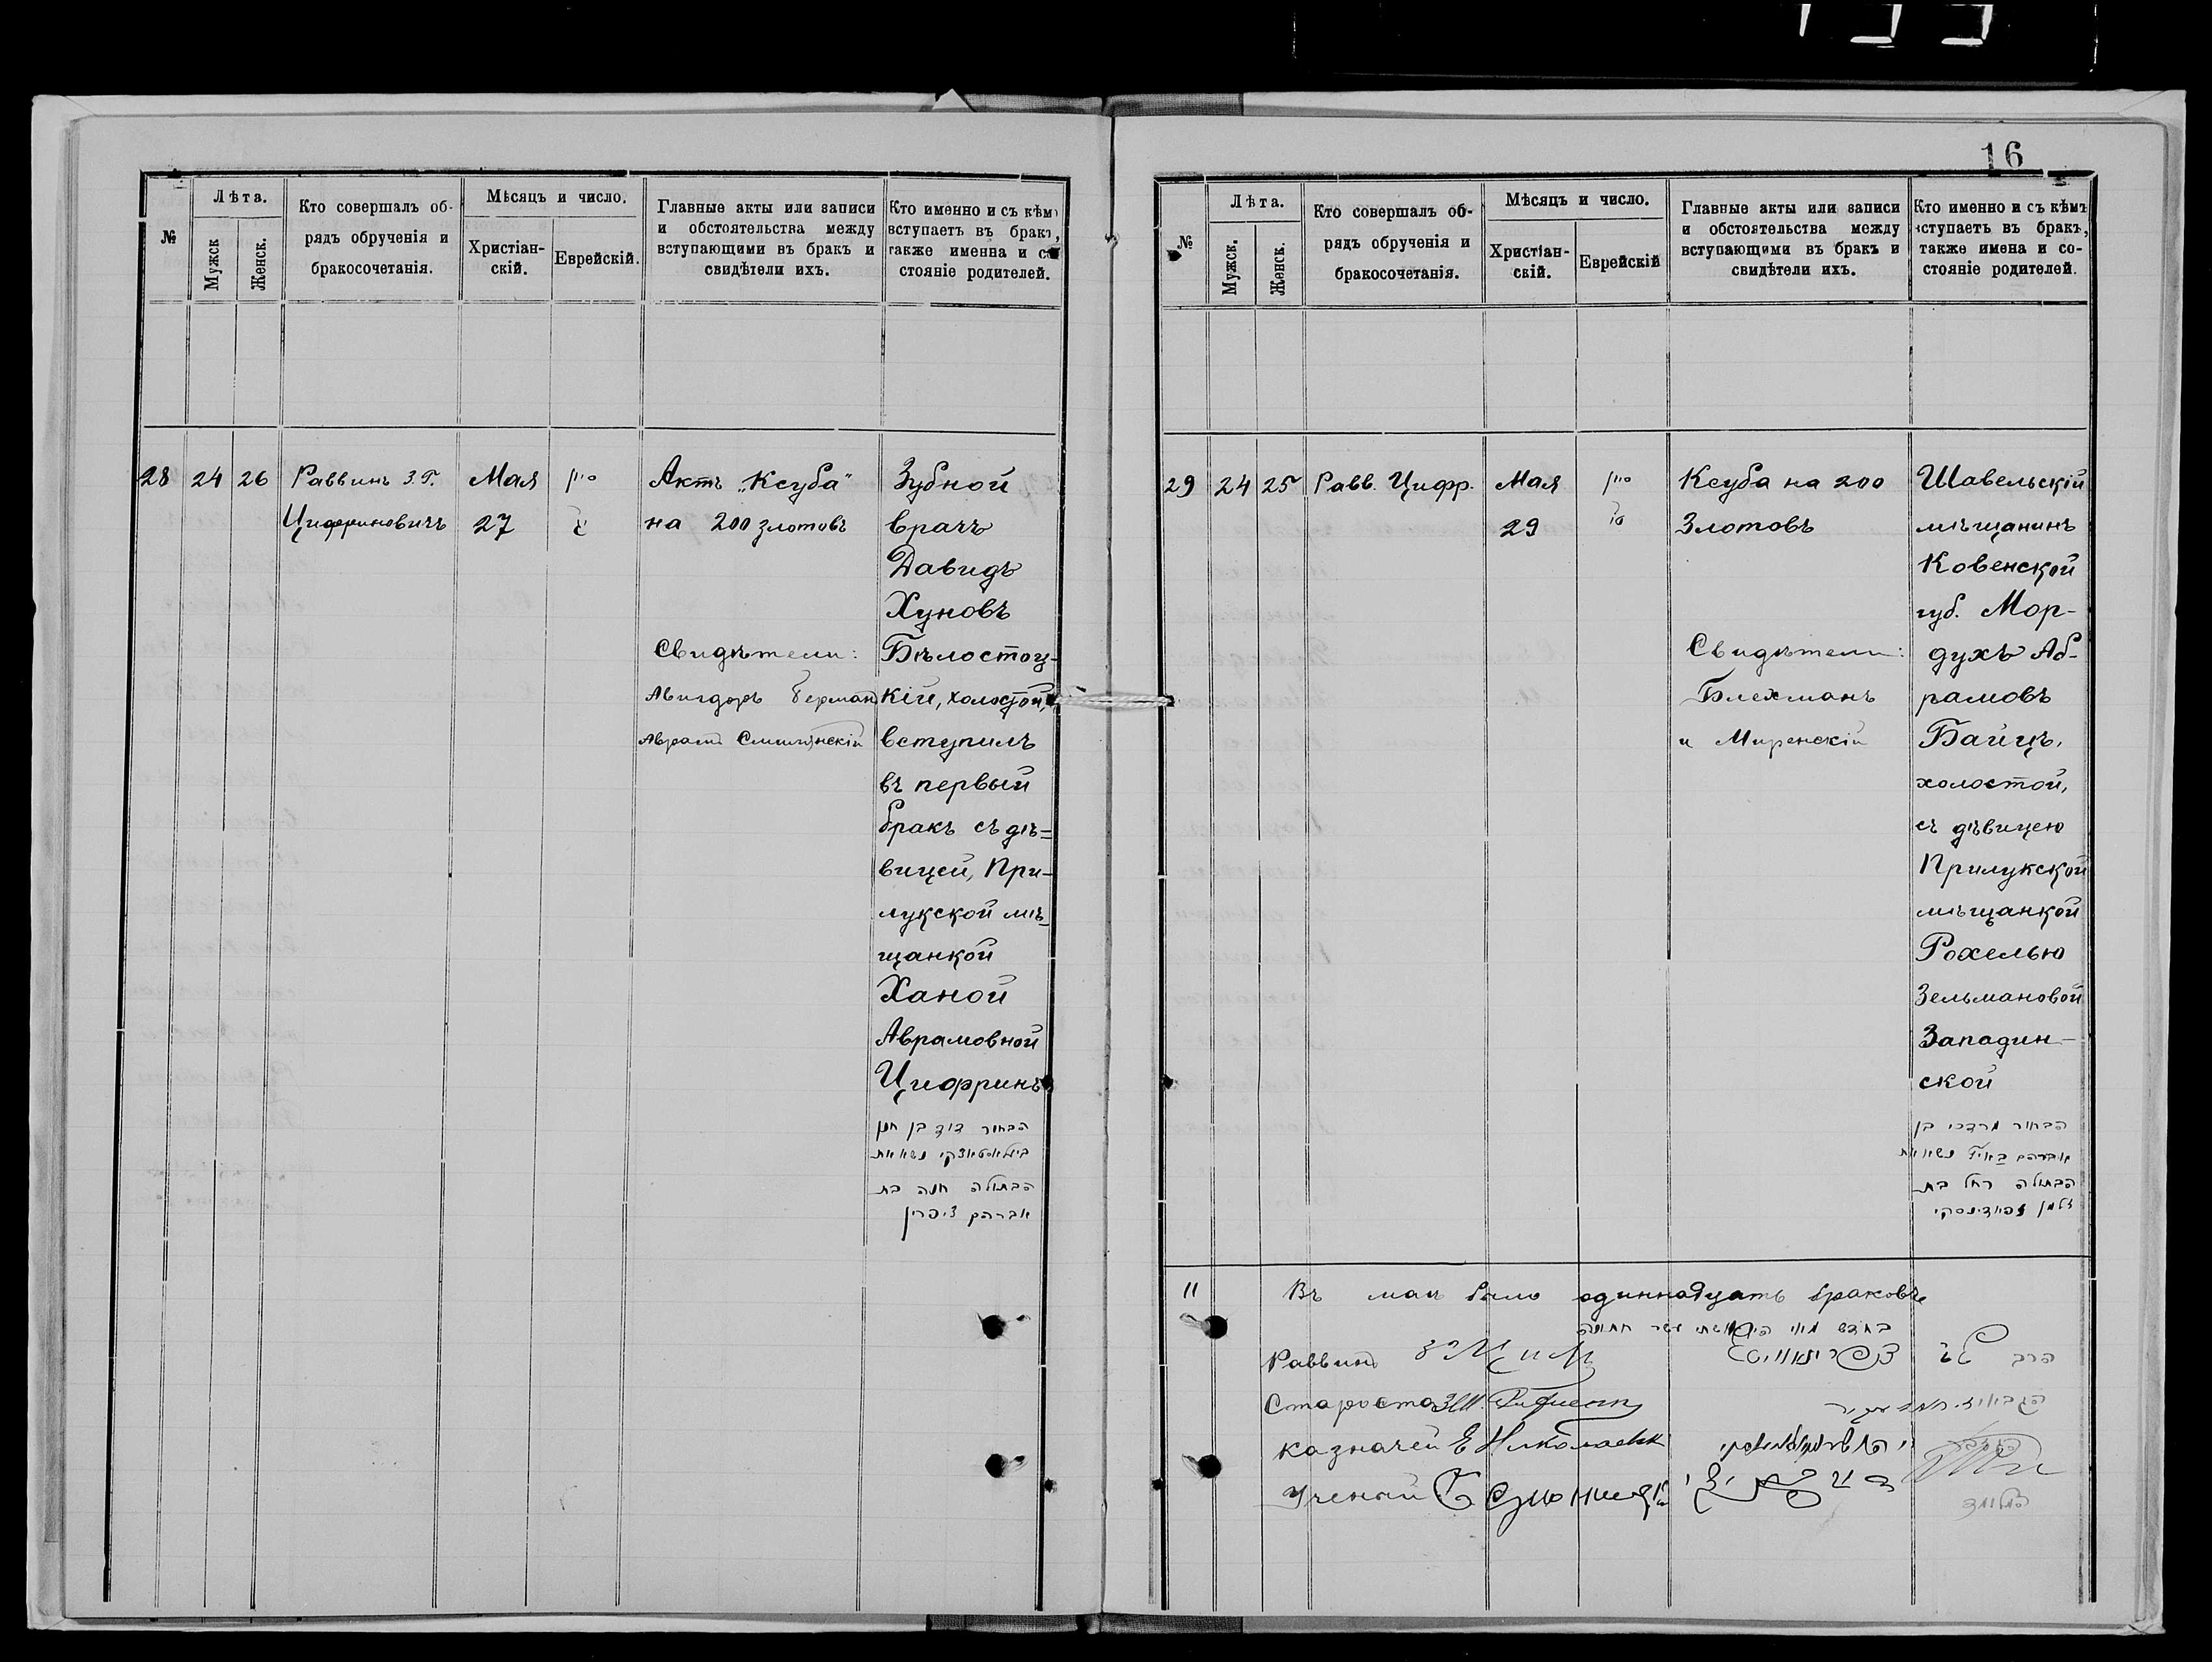 16
№
Лѣта.
Мужск
Женск.
Кто совершалъ об-
рядъ обрученія и
бракосочетанія.
Мѣсяцъ и число.
Христіан-
скій.
Еврейскій.
Главные акты или записи
и обстоятельства между
вступающими въ бракъ и
свидѣтели ихъ.
Кто именно и съ кѣмъ
вступаетъ въ бракъ,
также имена и со-
стояніе родителей.
28
24
26
Раввинъ З. Г.
Цифриновичъ
Мая
27
סיון
Актъ „Ксуба"
на 200 злотовъ
Свидѣтели:
Авигдоръ Берман
Аврамъ Смилянскій
Зубной
врачъ
Давидъ
Хуновъ
Бѣлостоц-
кій, холостой,
вступилъ
въ первый
бракъ съ дѣ=
вицей, При-
лукской мѣ-
щанкой
Ханой
Аврамовной
Цифринъ
הבחור דוד בן חנן
ביאלאסטאצקי נשא את
הבתולה חנה בת
אברהם ציפרין
№
Лѣта.
Мужск.
Женск.
Кто совершалъ об-
рядъ обрученія и
бракосочетанія.
Мѣсяцъ и число.
Христіан-
скій.
Еврейскій
Главные акты или записи
и обстоятельства между
вступающими въ бракъ и
свидѣтели ихъ.
Кто именно и съ кѣмъ
вступаетъ въ бракъ,
также имена и со-
стояніе родителей.
29
24
25
Равв. Цифр.
Мая
29
סיון
Ксуба на 200
Злотовъ
Свидѣтели:
Блехманъ
и Миренскій
Шавельскій
мѣщанинъ
Ковенской
губ. Мор-
духъ Аб-
рамовъ
Байцъ,
холостой,
съ дѣвицею
Прилукской
мѣщанкой
Рохелью
Зельмановой
Западин-
ской
הבחור מרדכי בן
אברהם נשא את
הבתולה רחל בת
זלמן זפאדינסקי
11
Въ маѣ было одиннадцать браковъ
בחדש מאי היו עשתי עשר חתונה
Раввинъ
הרב
Староста З Ш.
казначей Е Николаевск
Ученый